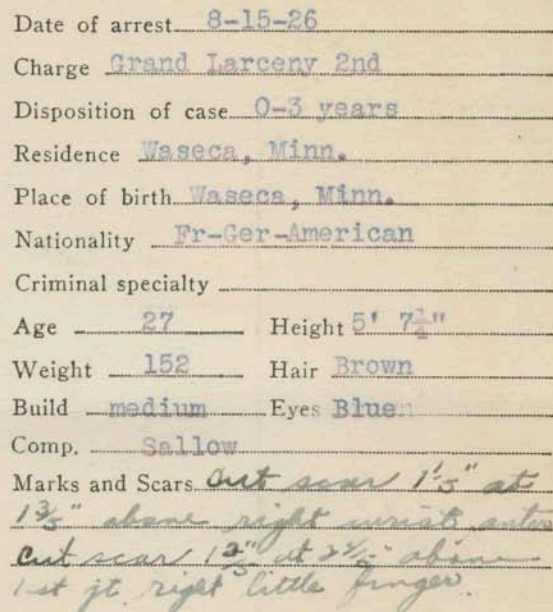 Date of arrest 8-15-26
Charge Grand Larceny 2nd
Disposition of case 0-3 years
Residence Waseca, Minn.
Place of birth Waseca, Minn.
Nationality Fr-Ger-American
Criminal specialty
Age 27 Height 5' 7¼"
Weight 152 Hair Brown
Build medium Eyes Blue
Comp. Sallow
Marks and Scars Cut scar 1 1/5" at
1 3/5" above right wrist
cut scar 1 2/5" at 2 4/5" above
1st jt. right little finger.